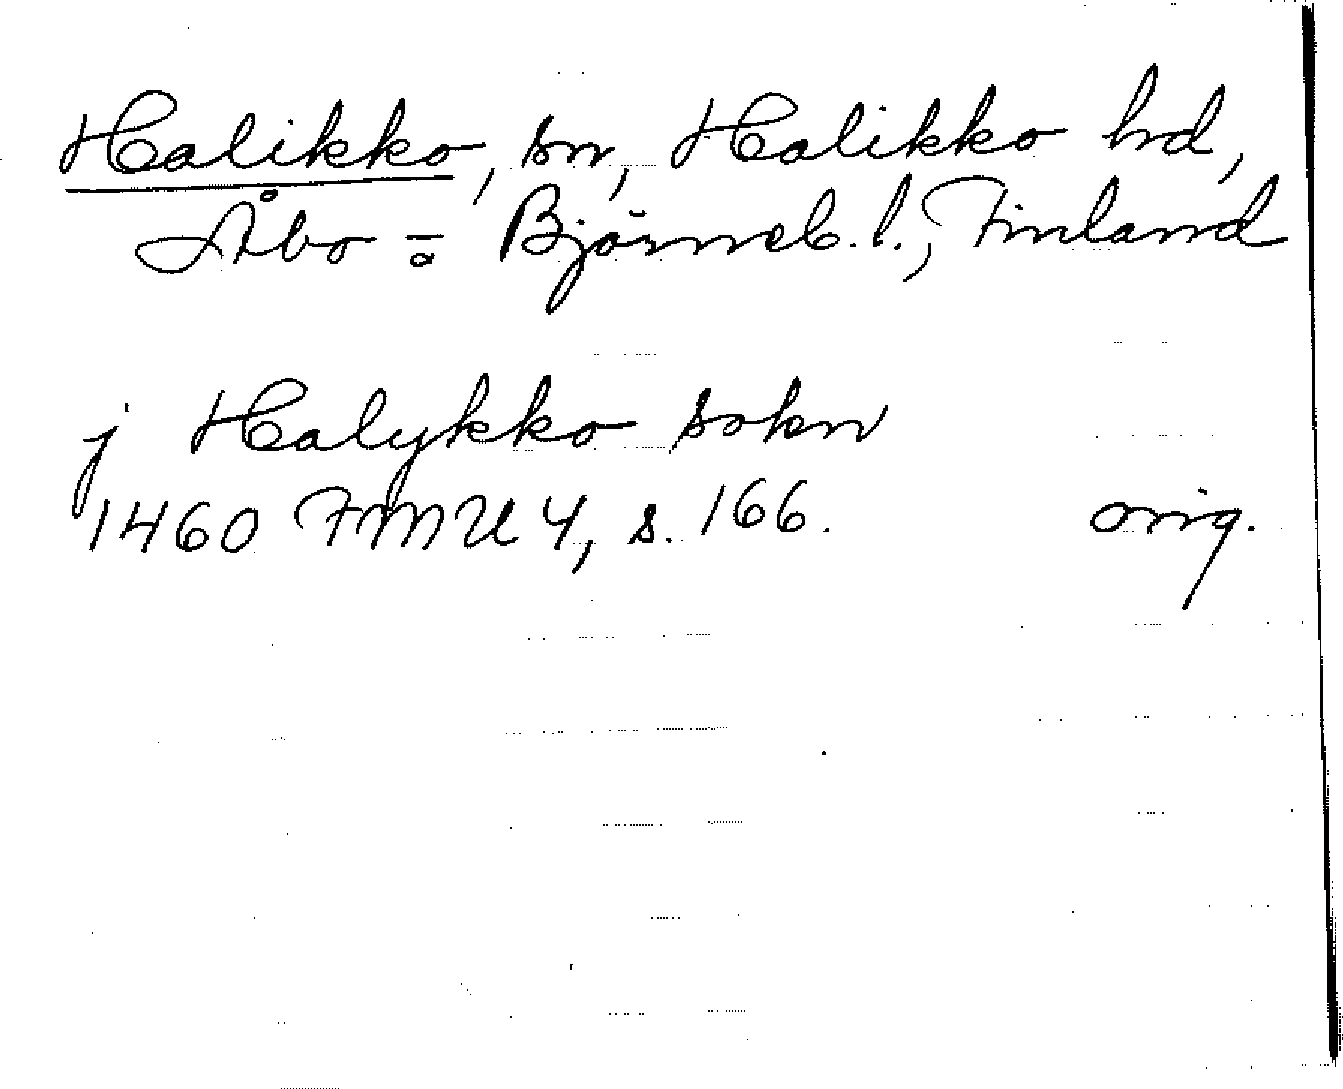 Halikko, sn, Halikko hd,
Åbo - o Björneb. l., Finland
j Halykko sokn
1460 FMU 4, s. 166. orig.